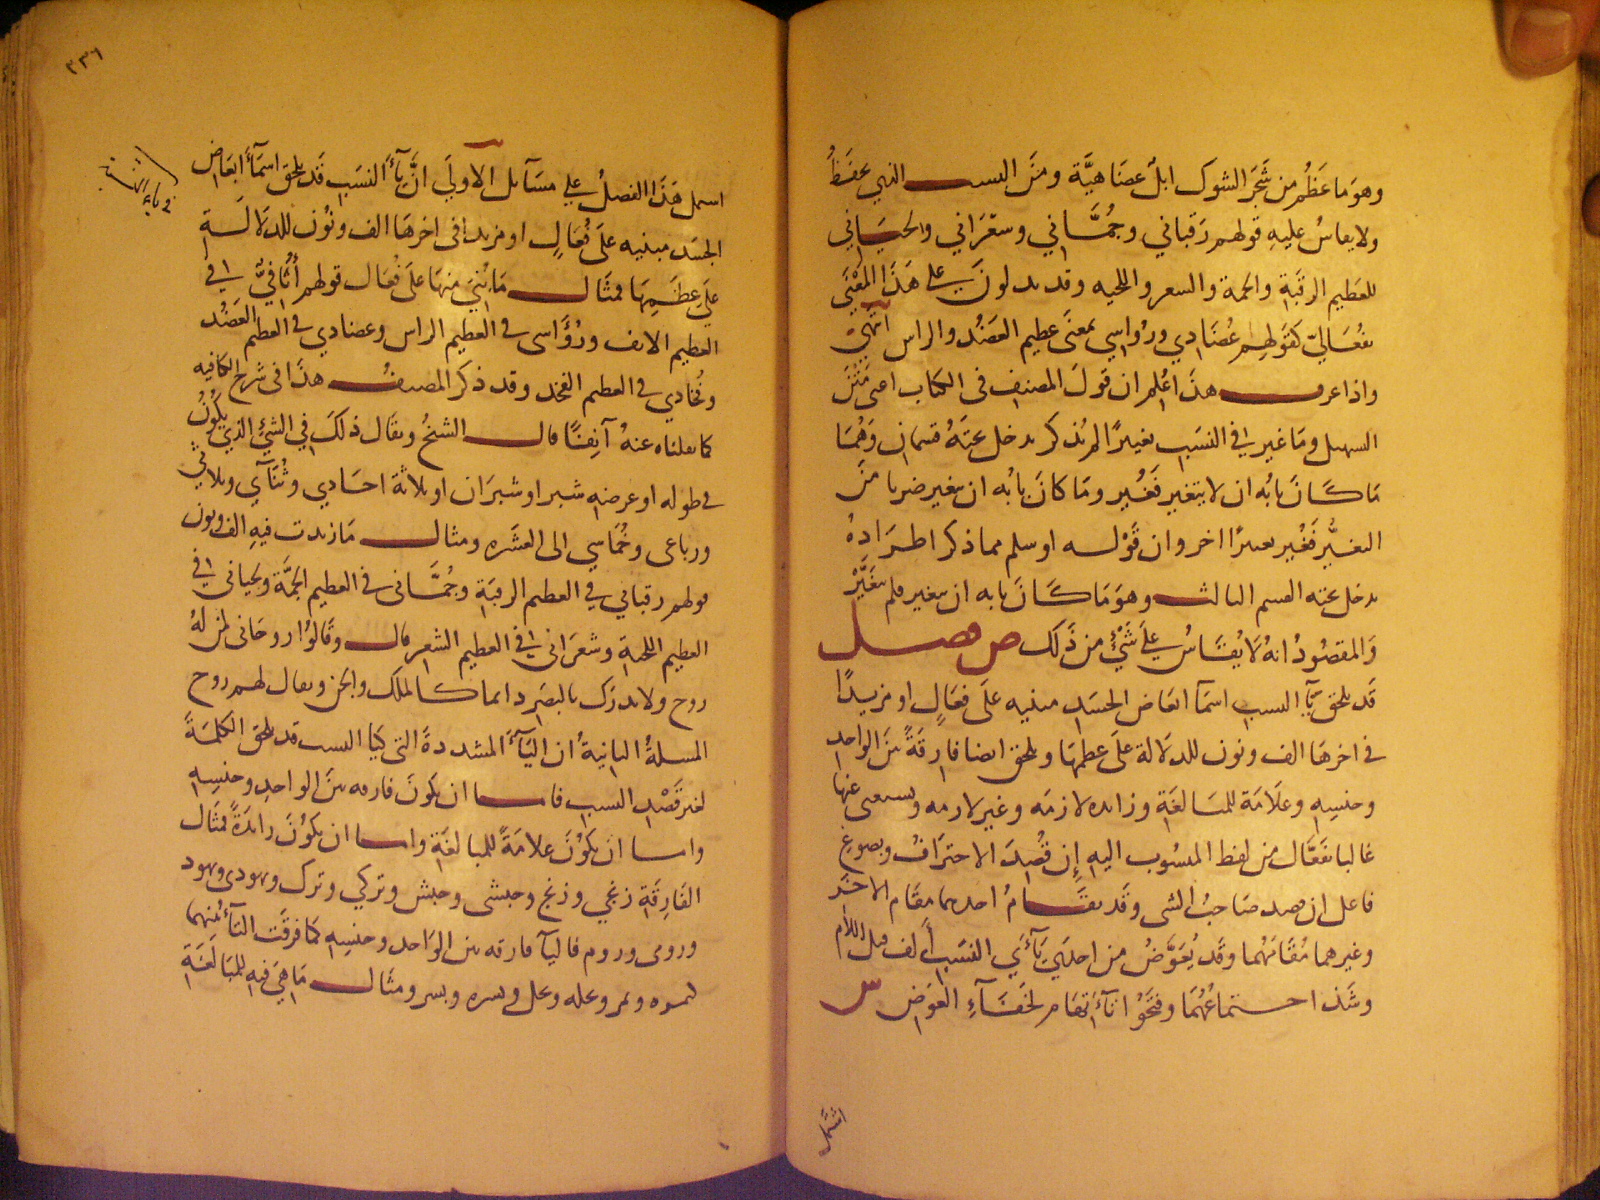 وهو ما عظم من شجر الشوك ابل عضاهية ومن النسب الذي يحفظ
ولا يقاس عليه قولهم رقباني وجماني وشعراني والحياني
للعظيم الرقبة والجمة والشعر واللحيه وقد يدلون على هذا المعنى
بفعالي كقولهم عضادي ورؤاسي بمعنى عظيم العضد والراس انتهى
واذا عرف هذا اعلم ان قول المصنف في الكتاب اعني
السهيل وما غير في النسب تغييرا لم يذكر يدخل تحته قسمان وهما
ما كان بابه ان لا يتغير فغير وما كان بابه ان يتغير ضربا من
التغير فغير تغييرا اخر وان قوله او سلم مما ذكر اطراده
يدخل تحته القسم الثالث وهو ما كان بابه ان يتغير فلم يتغير
والمقصود انه لا يقاس على شيء من ذلك ص فصل
قد يلحق يآ النسب اسمآ ابعاض الجسد مبنيه على فعال او مزيدا
في اخرها الف ونون للدلالة على عظمها ويلحق ايضا فارقة بين الواحد
وجنسه وعلامة للمبالغة وزائده لازمه وغير لازمه ويستغنى عنها
غالبا بفعال من لفظ المنسوب اليه ان قصد الاحتراف وبصوغ
فاعل ان قصد صاحب الشى وقد يقام احدهما مقام الاخر
وغيرهما مقامهما وقد يعوض من احدى يآءي النسب الف قبل اللام
وشذ اجتماعهما وفتحوا تآء تهام لخفآء العوض س
اشتمل
٢٣٦
اشتمل هذا الفصل على مسآئل الآولي ان يآء النسب قد يلحق اسمآء ابعاض
الجسد مبنيه على فعال او مزيدا في اخرها الف ونون للدلالة
على عظمها فمثال ما بني منها على فعال قولهم أنافي في
العظيم الانف ورؤاسي في العظيم الراس وعضادي في العظيم العضد
وفخادي في العظيم الفخد وقد ذكر المصنف هذا في شرح الكافيه
كما نقلناه عنه آنفا قال الشيخ ويقال ذلك في الشيء الذي يكون
في طوله او عرضه شبر او شبران او ثلاثة احادي وثنآي وثلاثي
ورباعي وخماسي الى العشره ومثال ما زيدت فيه الف ونون
قولهم رقباني في العظيم الرقبة وجماني في العظيم الجمة ولحياني في
العظيم اللحية وشعراني في العظيم الشعر قال وقالوا روحاني لمن له
روح ولا يدرك بالبصر دائما كالملك والجن ويقال لهم روح
المسلة الثانية ان اليآء المشددة التي كيا النسب قد يلحق الكلمة
لغير قصد النسب فاما ان يكون فارقه بين الواحد وجنسه
واما ان يكون علامة للمبالغة واما ان يكون زائدة فمثال
الفارقة زنجي وزنج وحبشي وحبش وتركي وترك ويهودي ويهود
ورومي وروم فاليآ فارقه بين الواحد وجنسه كما فرقت التآء بينهما
في تمره وتمر ونخله ونخل وبسره وبسر ومثال ما هي فيه للمبالغة